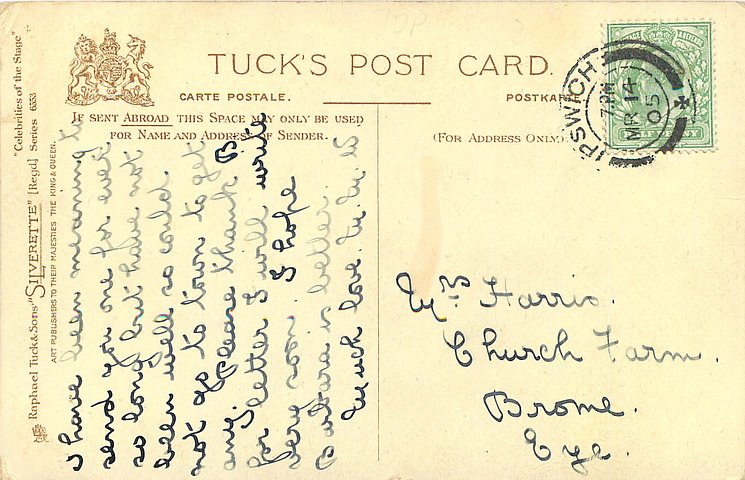 TUCK'S POST CARD.
CARTE POSTALE.
POSTKARTE
IF SENT ABROAD THIS SPACE MAY ONLY BE USED
FOR NAME AND ADDRESS OF SENDER.
(FOR ADDRESS ONLY).
"Celebrities of the Stage"
Raphael Tuck & Sons' "SILVERETTE" [Regd.] Series 6553
ART PUBLISHERS TO THEIR MAJESTIES THE KING & QUEEN.
I have been meaning to
send you one for ever
so long but have not
been well so could
not go to town to get
any. please thank B
for letter I will write
very soon. I hope
Barbara is better.
Much love. M. M. W
IPSWICH
7. PM
MR 14
05
Mrs Harris.
Church Farm.
Brome.
Eye.